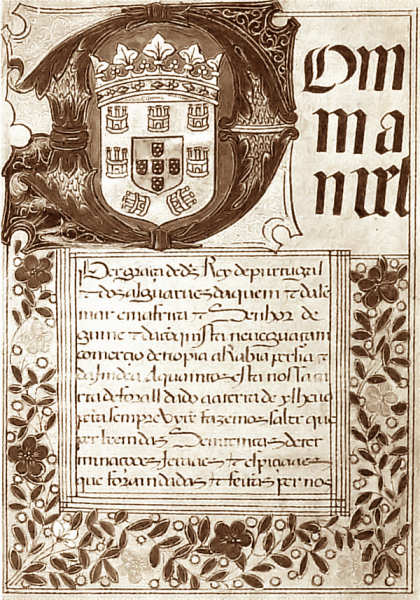 Dom
ma
nuel
Per graça de ds Rey de purtugal
⁊ dos alguarues daquem ⁊ dale
mar em africa ⁊ Senhor de
guine ⁊ da conquista navegaçam
comercio de etiopia arabia persia ⁊
da Jndea A quantos esta nossa car
ta de forall dado a a terra de ylheuo
pera sempre virē fazemos saber que
per bem das Sentenças deter
minações Jeraaes ⁊ espiçiaes
que foram dadas ⁊ feitas per nos